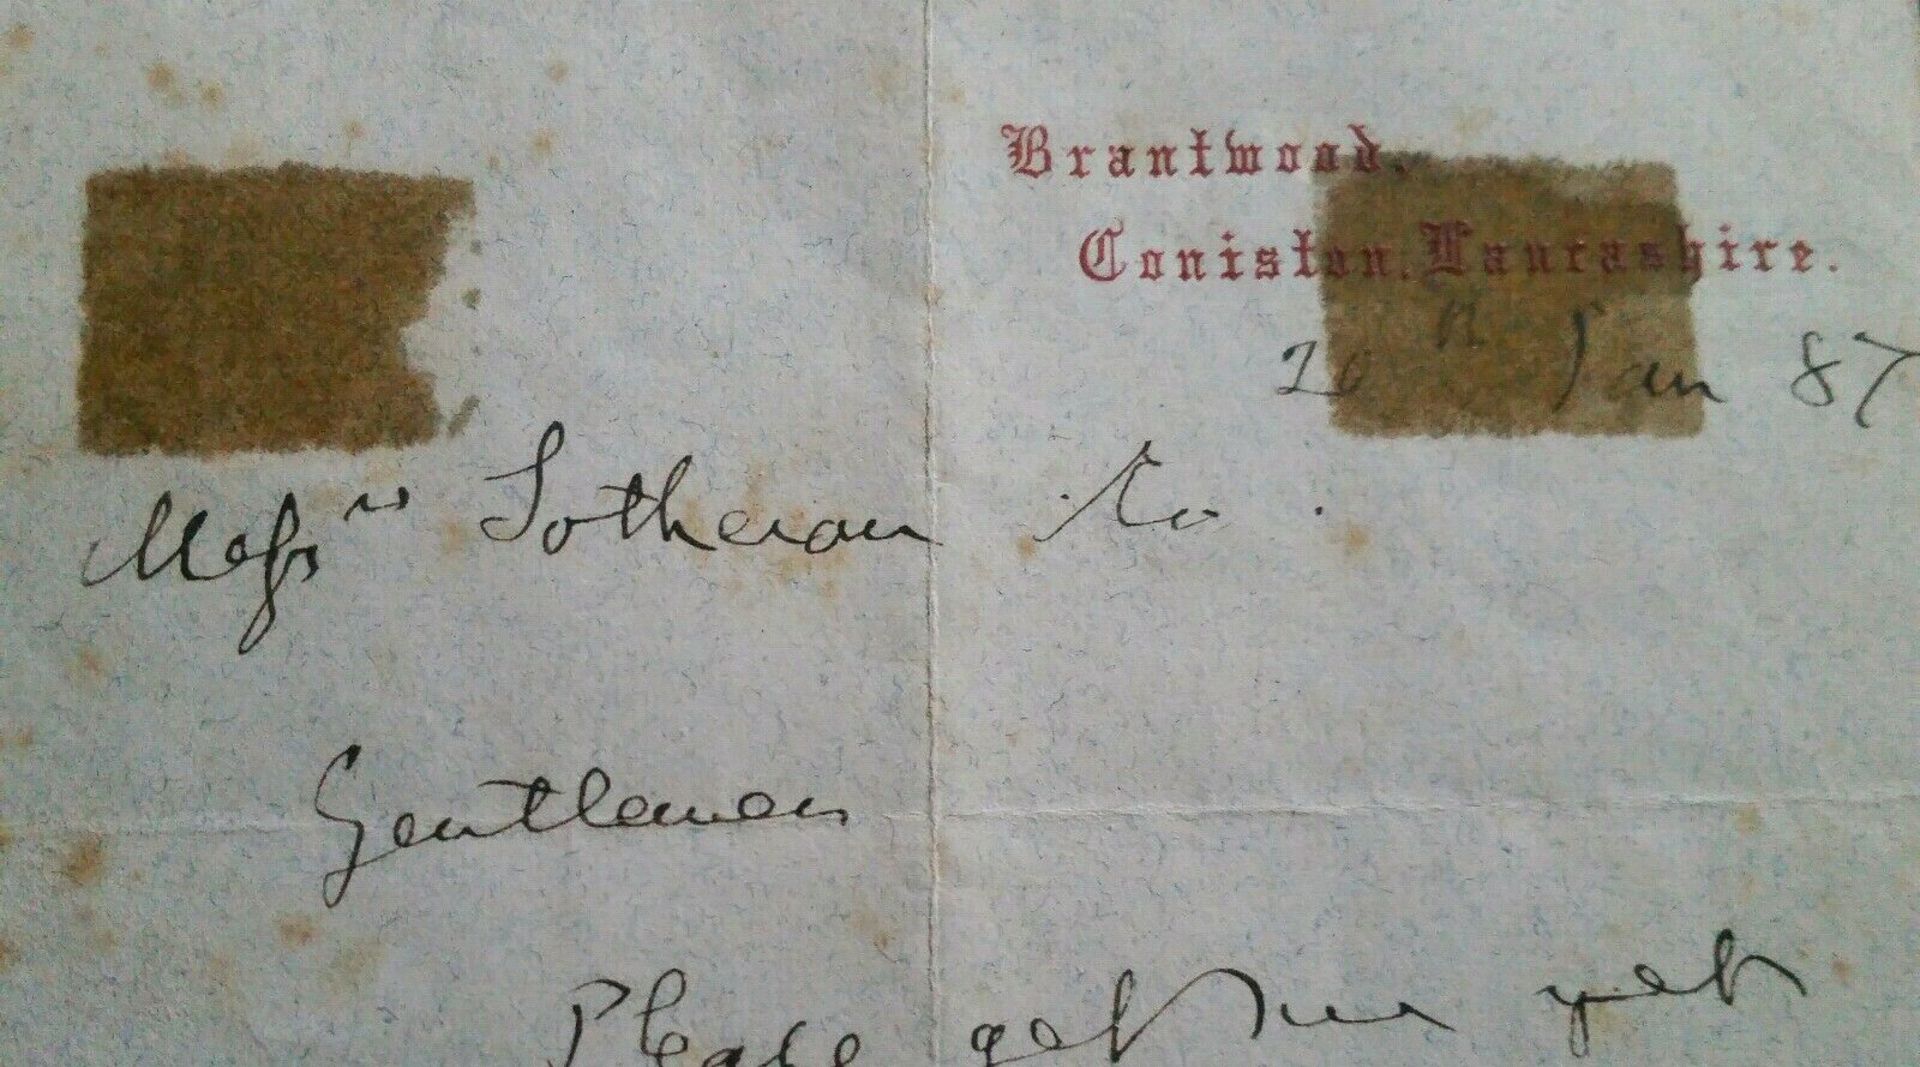 Brantwood.
Coniston, Lancashire.
20th Jan 87
Messrs Sotheran & Co.
Gentlemen
Please get me yet